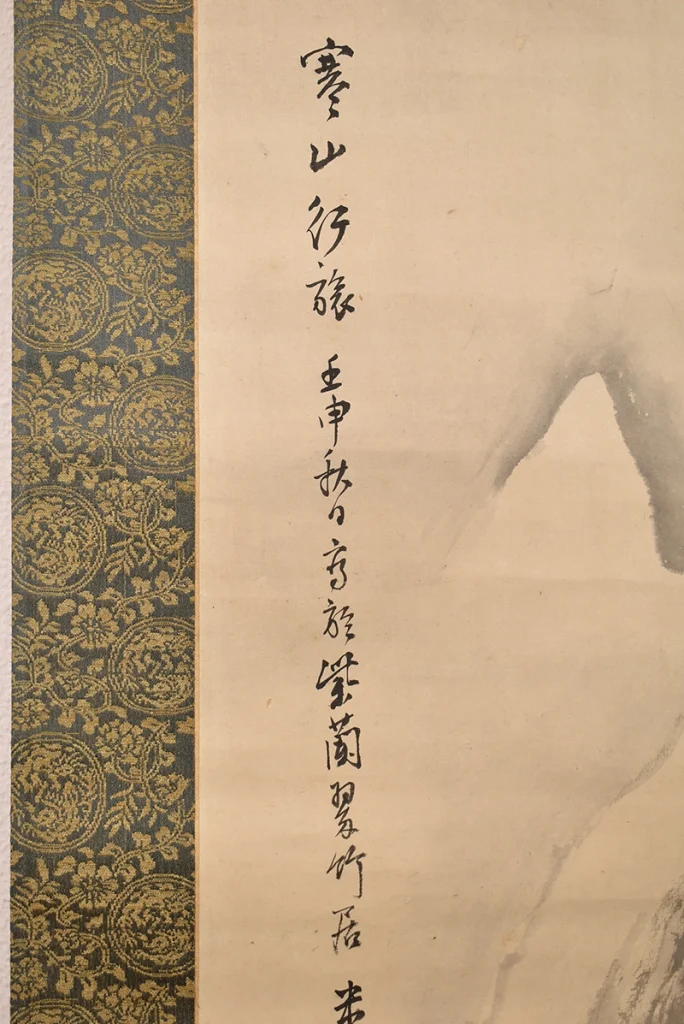 寒山行旅 壬申秋日寫於紫蘭翠竹居 米